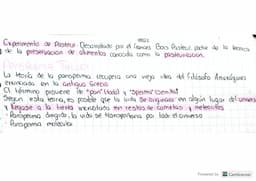 Experimento de Pasteur: Desarrollado por el francés Louis Pasteur, padre de la técnica
de la preservación de alimentos conocida como la pasteurización.
La teoría de la panspermia recupera una vieja idea del filósofo Anaxágoras
enunciada en la antigua Grecia
El término proviene de "pan" (todo) y "sperma" (semilla)
Según esta teoría, es posible que la vida se originase en algún lugar del universo
y llegase a la tierra incrustada en restos de cometas y meteoritos
· Panspermia dirigida: la vida se transportaría por todo el universo
· Panspermia molecular
Powered by CamScanner